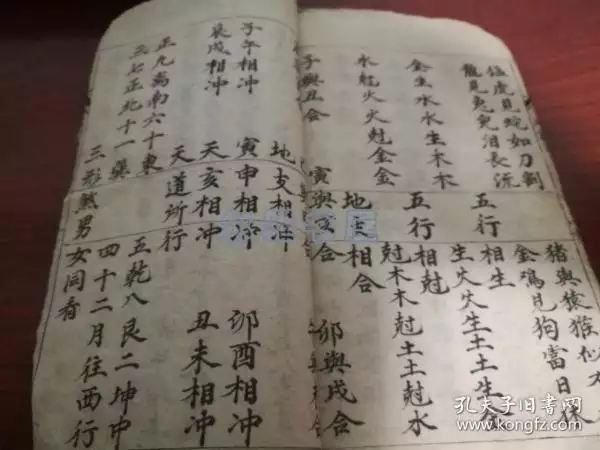 猛虎見蛇如刀割
猪與猿猴似
龍見兔兒泪長流
金鷄見狗當日休
五行相生
金生水水生木木生火火生土土生金
五行相尅
水尅火火尅金金尅木木尅土土尅水
地支相合
子與丑合 寅與亥合 卯與戌合
地支相冲
子午相冲 寅申相冲 卯酉相冲
辰戌相冲 天亥相冲 丑未相冲
天道所行
正九高南六十東 五乾八艮二坤中
三七正北十一巽 四十二月往西行
三形煞男女同看
孔夫子旧書网